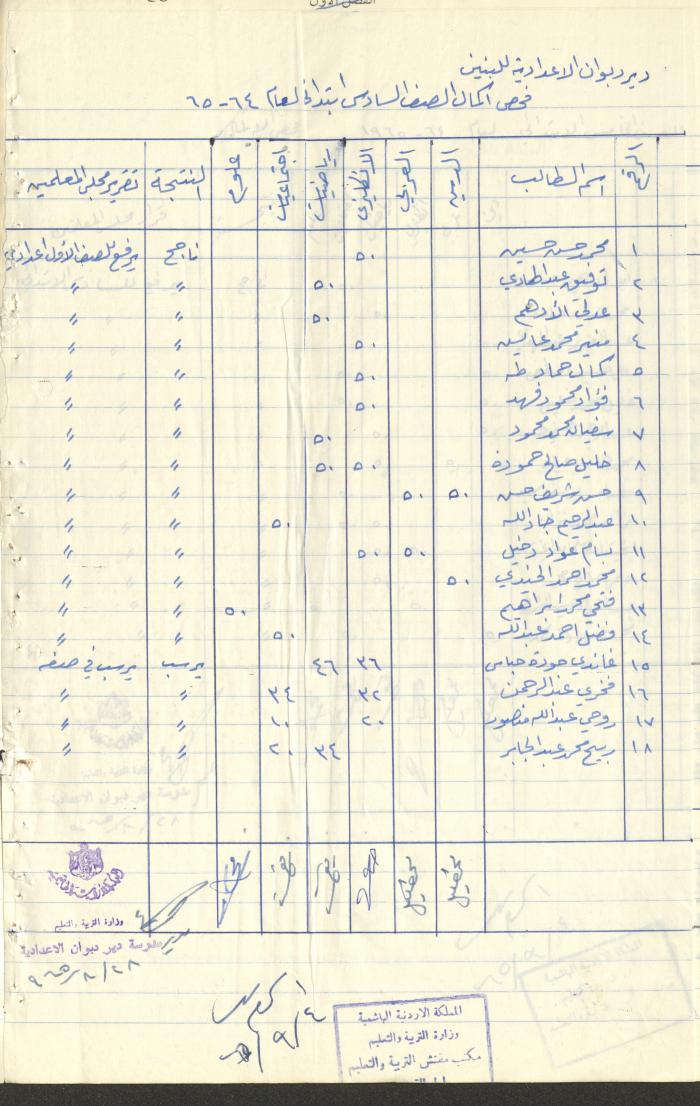 الفصل الأول
ديردبوان الاعدادية للبنين
فحص اكمال الصف السادس ابتدائي لعام ٦٤-٦٥
الرقم اسم الطالب الدين العربي الانجليزي رياضيات اجتماعيات علوم النتيجة تقرير مجلس المعلمين
١ محمد حسن حسين ٥٠ ناجح يرفع للصف الأول اعدادي
٢ توفيق عبد الهادي ٥٠〃 〃
٣ عدلي الأدهم ٥٠ 〃 〃
٤ منير محمد عايش ٥٠ 〃 〃
٥ كمال حماد طه ٥٠ 〃 〃
٦ فؤاد محمود فهد ٥٠ 〃 〃
٧ سفيان محمد محمود ٥٠ 〃 〃
٨ خليل صالح حمودة ٥٠ ٥٠ 〃 〃
٩ حسن شريف حسن ٥٠ ٥٠ 〃 〃
١٠ عبد الرحيم جاد الله ٥٠ 〃 〃
١١ بسام عواد دخيل ٥٠ ٥٠ 〃 〃
١٢ محمد احمد الجندي ٥٠ 〃 〃
١٣ فتحي محمد ابراهيم ٥٠ 〃 〃
١٤ فضل احمد عبدالله ٥٠ 〃 〃
١٥ غاندي جودة عباس ٣٦ ٤٦ يرسب يرسب في صفه
١٦ فخري عبد الرحمن ٣٢ ٣٤ 〃 〃
١٧ روحي عبد الله منصور ٢٠ ٢٠ 〃 〃
١٨ ربيح محمد عبد الجابر ٣٤ ٢٠ 〃 〃
المملكة الاردنية الهاشمية
وزارة التربية والتعليم
مدرسة دير دبوان الاعدادية
٩٦٥/٨/٢٨
٩/٤
المملكة الاردنية الهاشمية
وزارة التربية والتعليم
مكتب مفتش التربية والتعليم